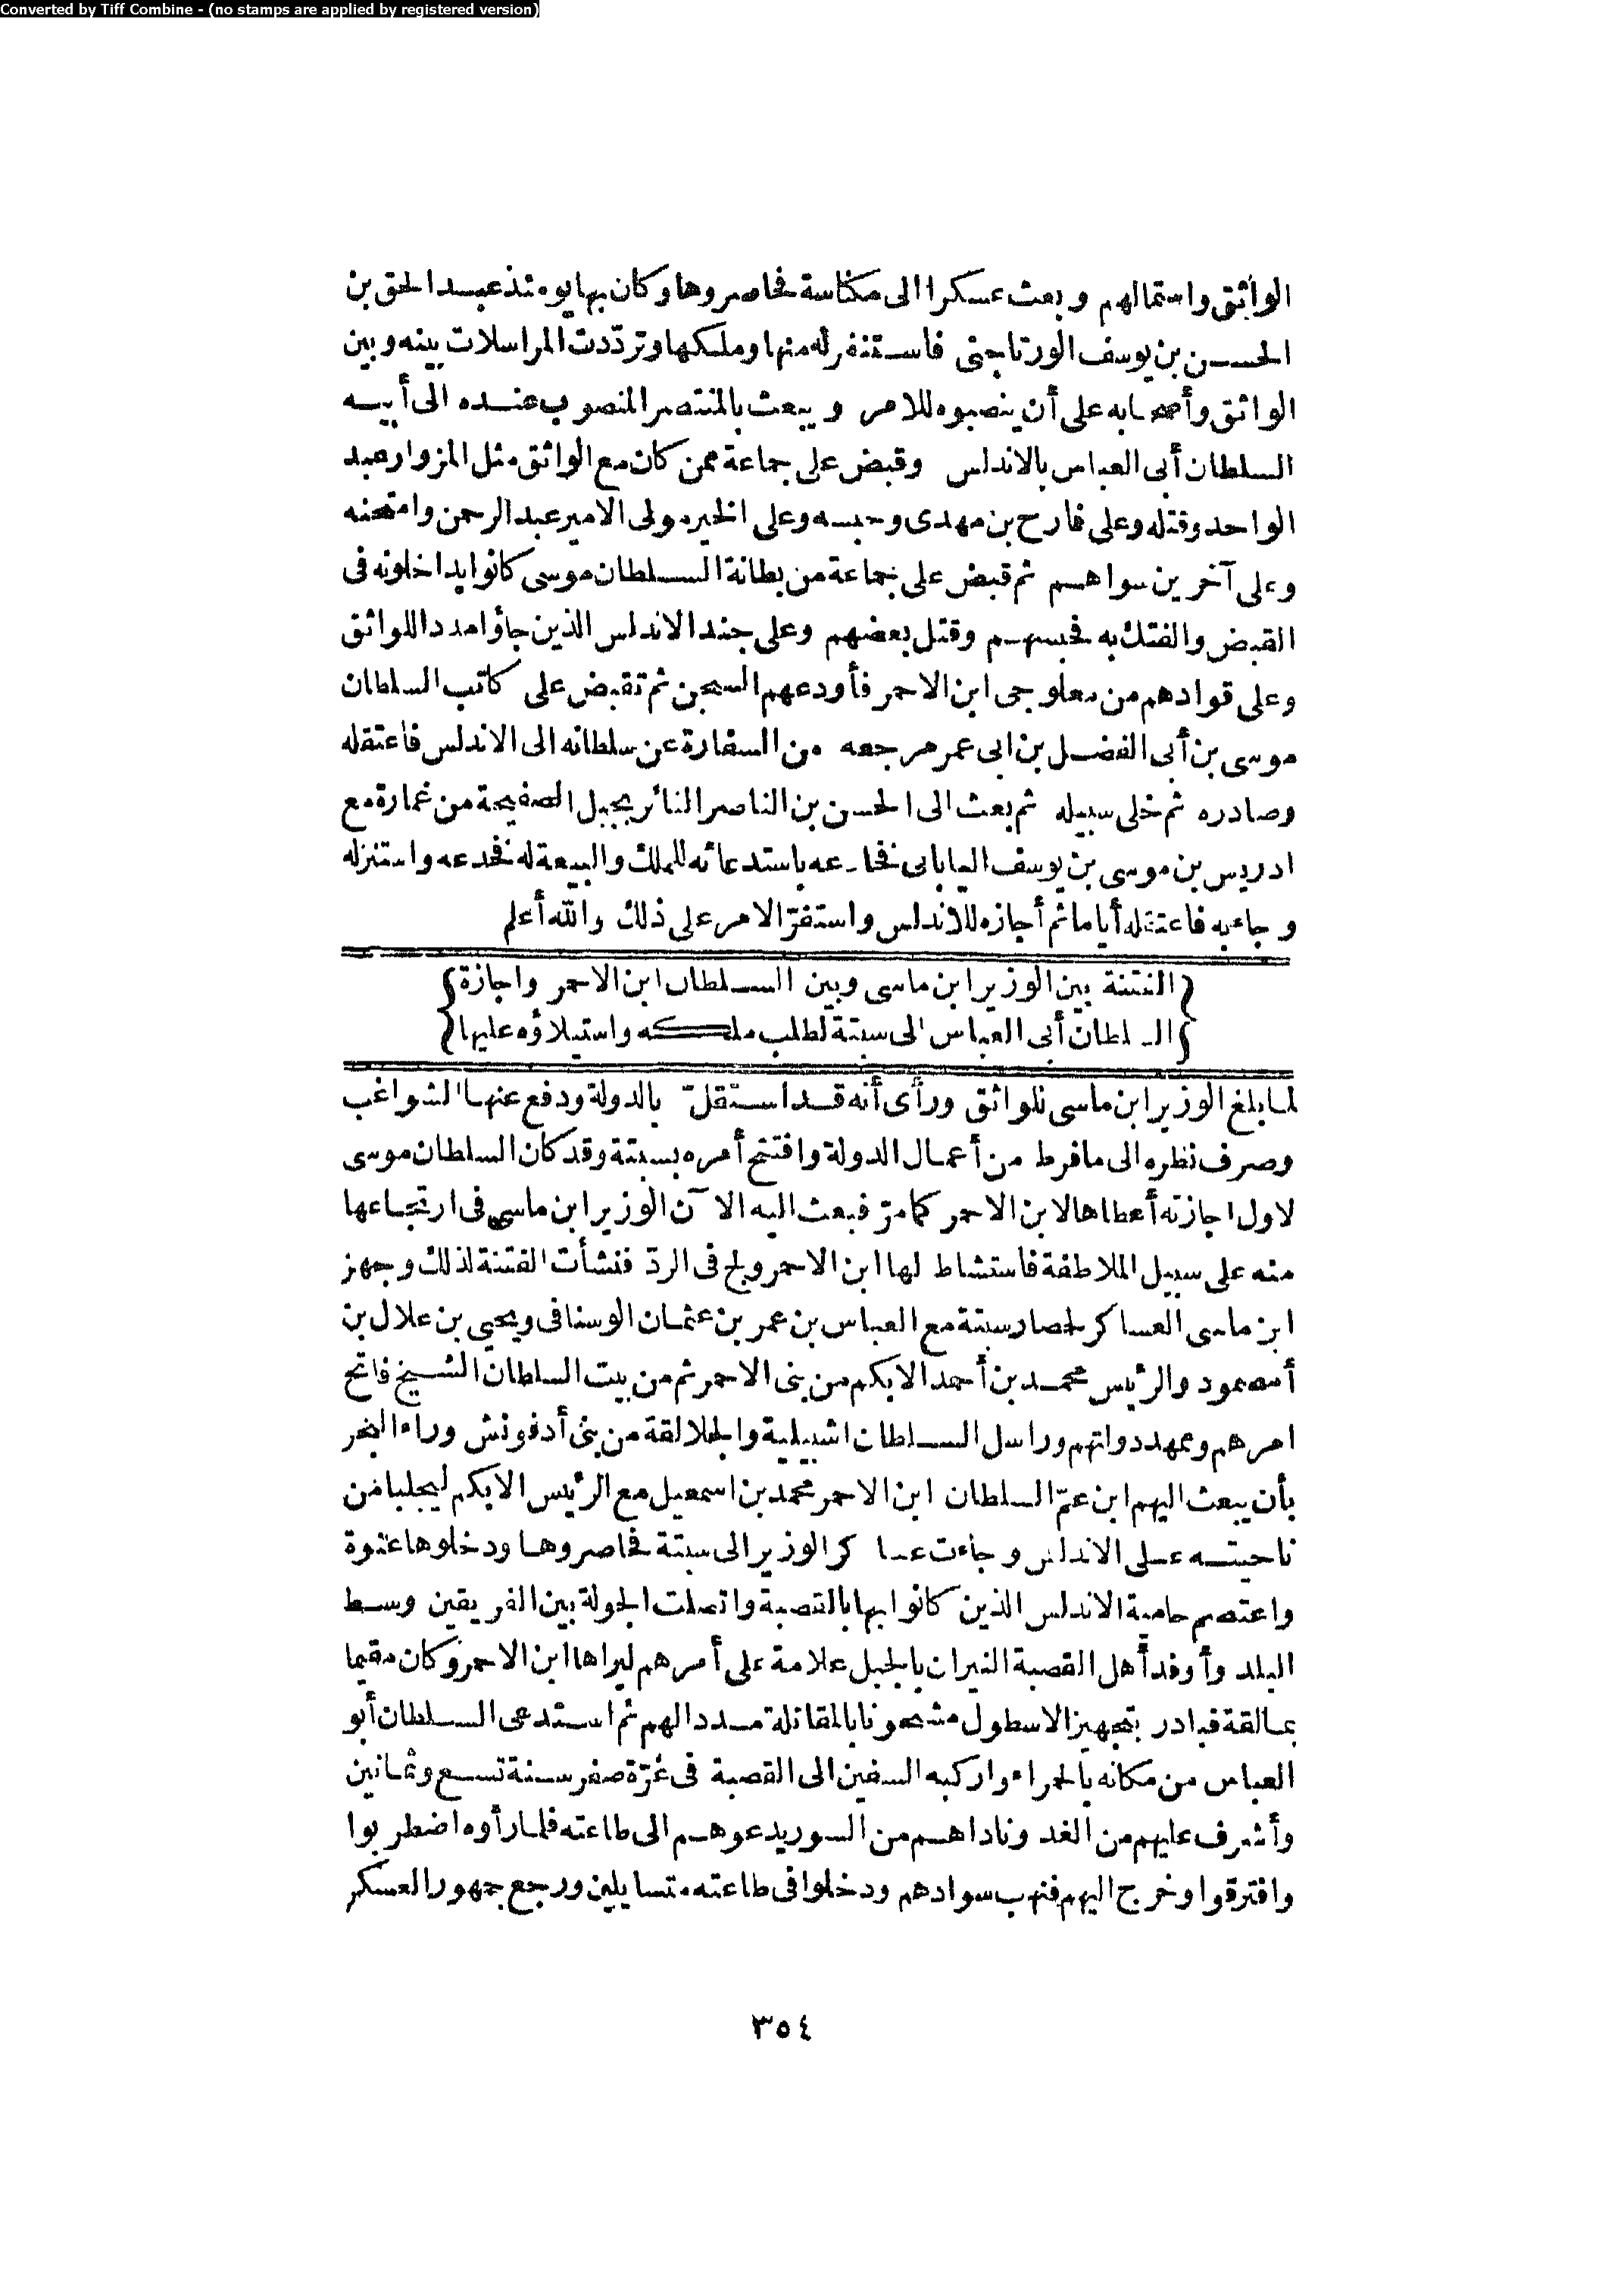 Converted by Tiff Combine - (no stamps are applied by registered version)
الواثق واستمالهم وبعث عسكرا الى مكناسة فحاصروها وكان بها يومئذ عبد الحق بن
الحسن بن يوسف الورتاجنى فاستنفر له منها وملكها وتردّدت المراسلات بينه وبين
الواثق وأصحابه على أن ينصبوه للامر ويبعث بالمنتصر المنصوب عنده الى أبيه
السلطان أبى العباس بالاندلس وقبض على جماعة ممن كان مع الواثق مثل المزوار عبد
الواحد وقتله وعلى فارح بن مهدى وحبسه وعلى الخير مولى الامير عبد الرحمن وامتحنه
وعلى آخرين سواهم ثم قبض على جماعة من بطانة السلطان موسى كانوا يداخلونه فى
القبض والفتك به فحبسهم وقتل بعضهم وعلى جند الاندلس الذين جاؤا مددا للواثق
وعلى قوادهم من معلوجى ابن الاحمر فأودعهم السجن ثم تقبض على كاتب السلطان
موسى بن أبى الفضل بن ابى عمر مرجعه من السفارة عن سلطانه الى الاندلس فاعتقله
وصادره ثم خلى سبيله ثم بعث الى الحسن بن الناصر الثائر بجبل الصفيحة من غمارة مع
ادريس بن موسى بن يوسف اليابانى فخادعه باستدعائه للملك والبيعة له فخدعه واستنزله
وجاءبه فاعتقله أياما ثم أجازه للاندلس واستقرّ الامر على ذلك والله أعلم
{الفتنة بين الوزير ابن ماسى وبين السلطان ابن الاحمر واجازة}
{السلطان أبى العباس الى سبتة لطلب ملكه واستيلاؤه عليها}
لما بلغ الوزير ابن ماسى للواثق ورأى أنه قد استقلّ بالدولة ودفع عنها الشواغب
وصرف نظره الى ما فرط من أعمال الدولة وافتتح أمره بسبتة وقد كان السلطان موسى
لاول اجازته أعطاها لابن الاحمر كما مرّ فبعث اليه الآن الوزير ابن ماسى فى ارتجاعها
منه على سبيل الملاطفة فاستشاط لها ابن الاحمر ولج فى الردّ فنشأت الفتنة لذلك وجهز
ابن ماسى العساكر لحصار سبتة مع العباس بن عمر بن عثمان الوسنافى ويحيى بن علال بن
أمصمود والرئيس محمد بن أحمد الابكم من بنى الاحمر ثم من بيت السلطان الشيخ فاتح
امرهم وممهد دولتهم وراسل السلطان اشبيلية والجلالقة من بنى أدفونش وراء البحر
بأن يبعث اليهم ابن عمّ السلطان ابن الاحمر محمد بن اسمعيل مع الرئيس الابكم ليجلبا من
ناحيته على الاندلس وجاءت عساكر الوزير الى سبتة فحاصروها ودخلوها عنوة
واعتصم حامية الاندلس الذين كانوا بها بالقصبة واتصلت الجولة بين الفريقين وسط
البلد وأوقد أهل القصبة النيران بالجبل علامة على أمرهم ليراها ابن الاحمر وكان مقيما
بمالقة فبادر بتجهيز الاسطول مشحونا بالمقاتلة مددا لهم ثم استدعى السلطان أبو
العباس من مكانه بالحمراء واركبه السفين الى القصبة فى غرّة صفر سنة تسع وثمانين
وأشرف عليهم من الغد وناداهم من السور يدعوهم الى طاعته فلما رأوه اضطربوا
وافترقوا وخرج اليهم فنهب سوادهم ودخلوا فى طاعته متسايلين ورجع جمهور العسكر
٣٥٤